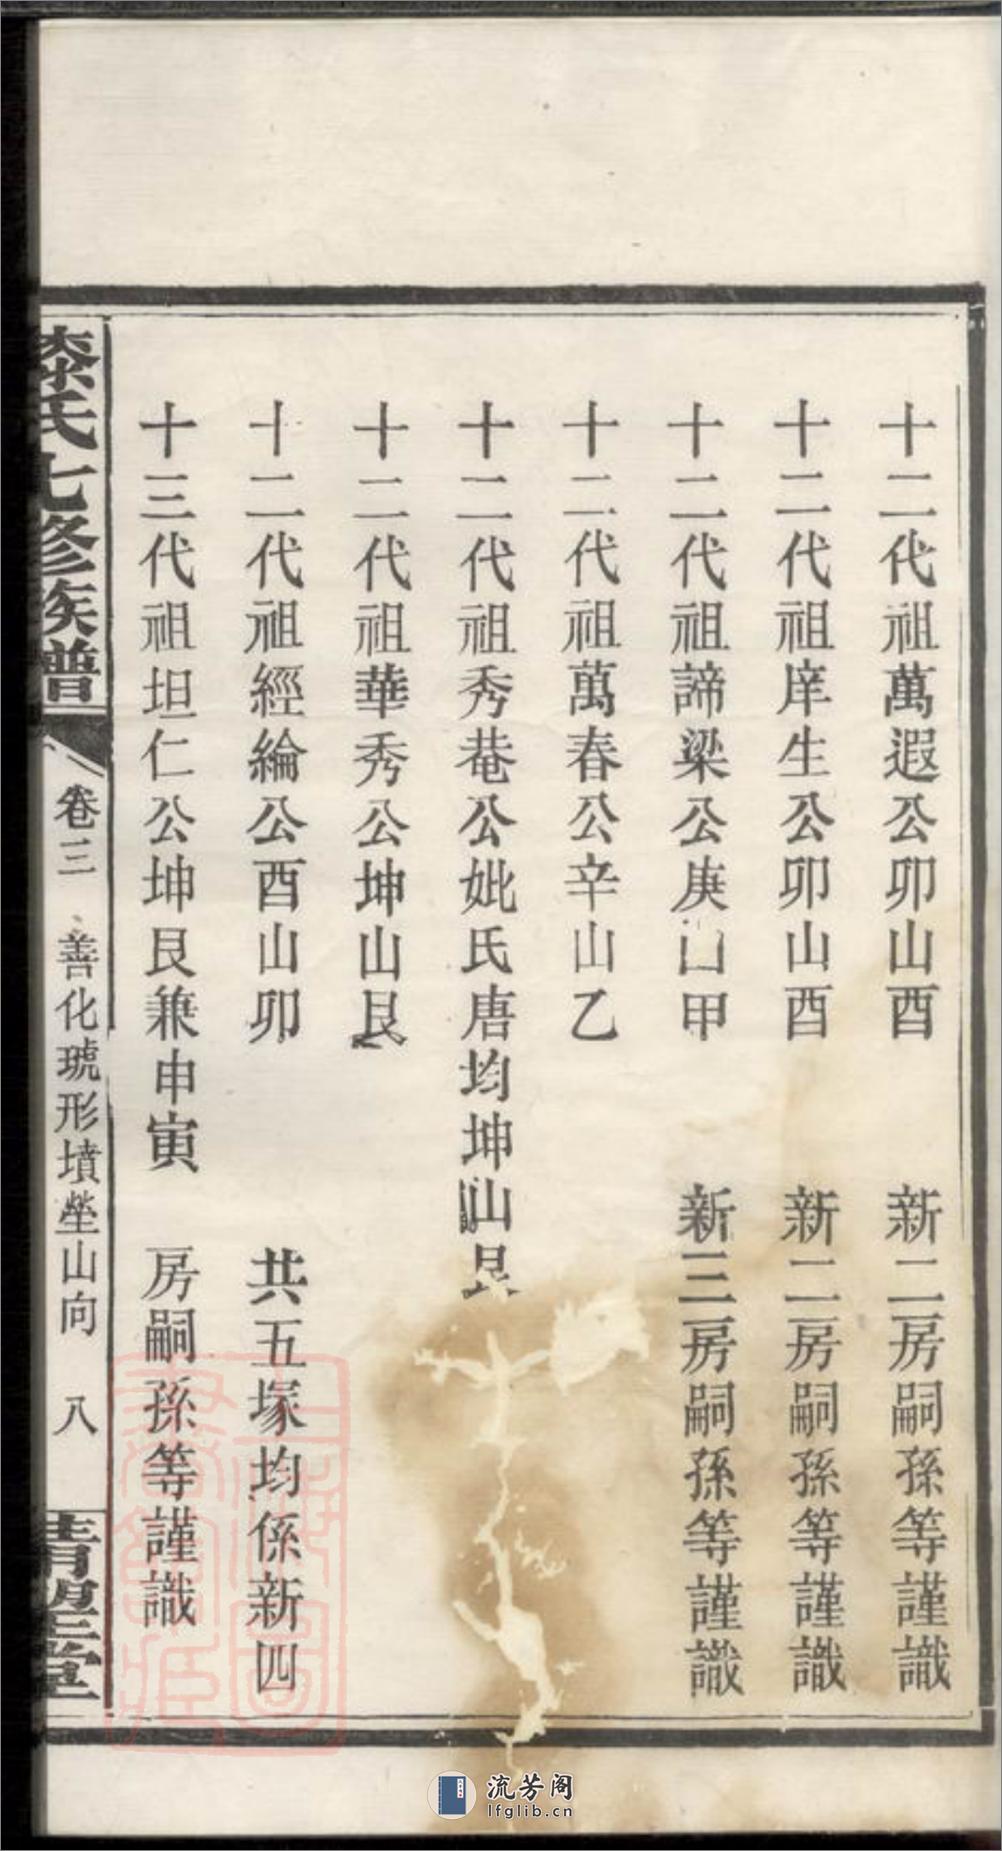 十二代祖萬遐公卯山酉　新二房嗣孫等謹識
十二代祖庠生公卯山酉　新二房嗣孫等謹識
十二代祖諦梁公庚山甲　新三房嗣孫等謹識
十二代祖萬春公辛山乙
十二代祖秀菴公妣氏唐均坤山艮
十二代祖華秀公坤山艮
十二代祖經綸公酉山卯　共五塚均係新四
十三代祖坦仁公坤艮兼申寅　房嗣孫等謹識
漆氏七修族譜　卷三　善化琥形墳塋山向　八　堂
流芳阁
lfglib.cn